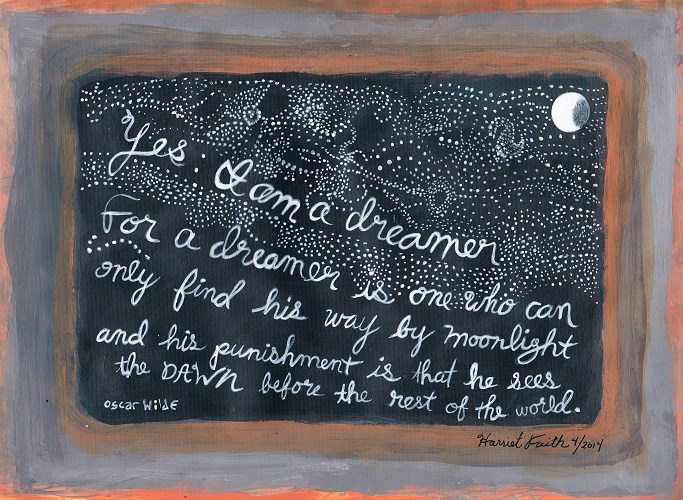 Yes. I am a dreamer
For a dreamer is one who can
only find his way by moonlight
and his punishment is that he sees
the DAWN before the rest of the world.
oscar WildE
Harriet Faith 4/2014